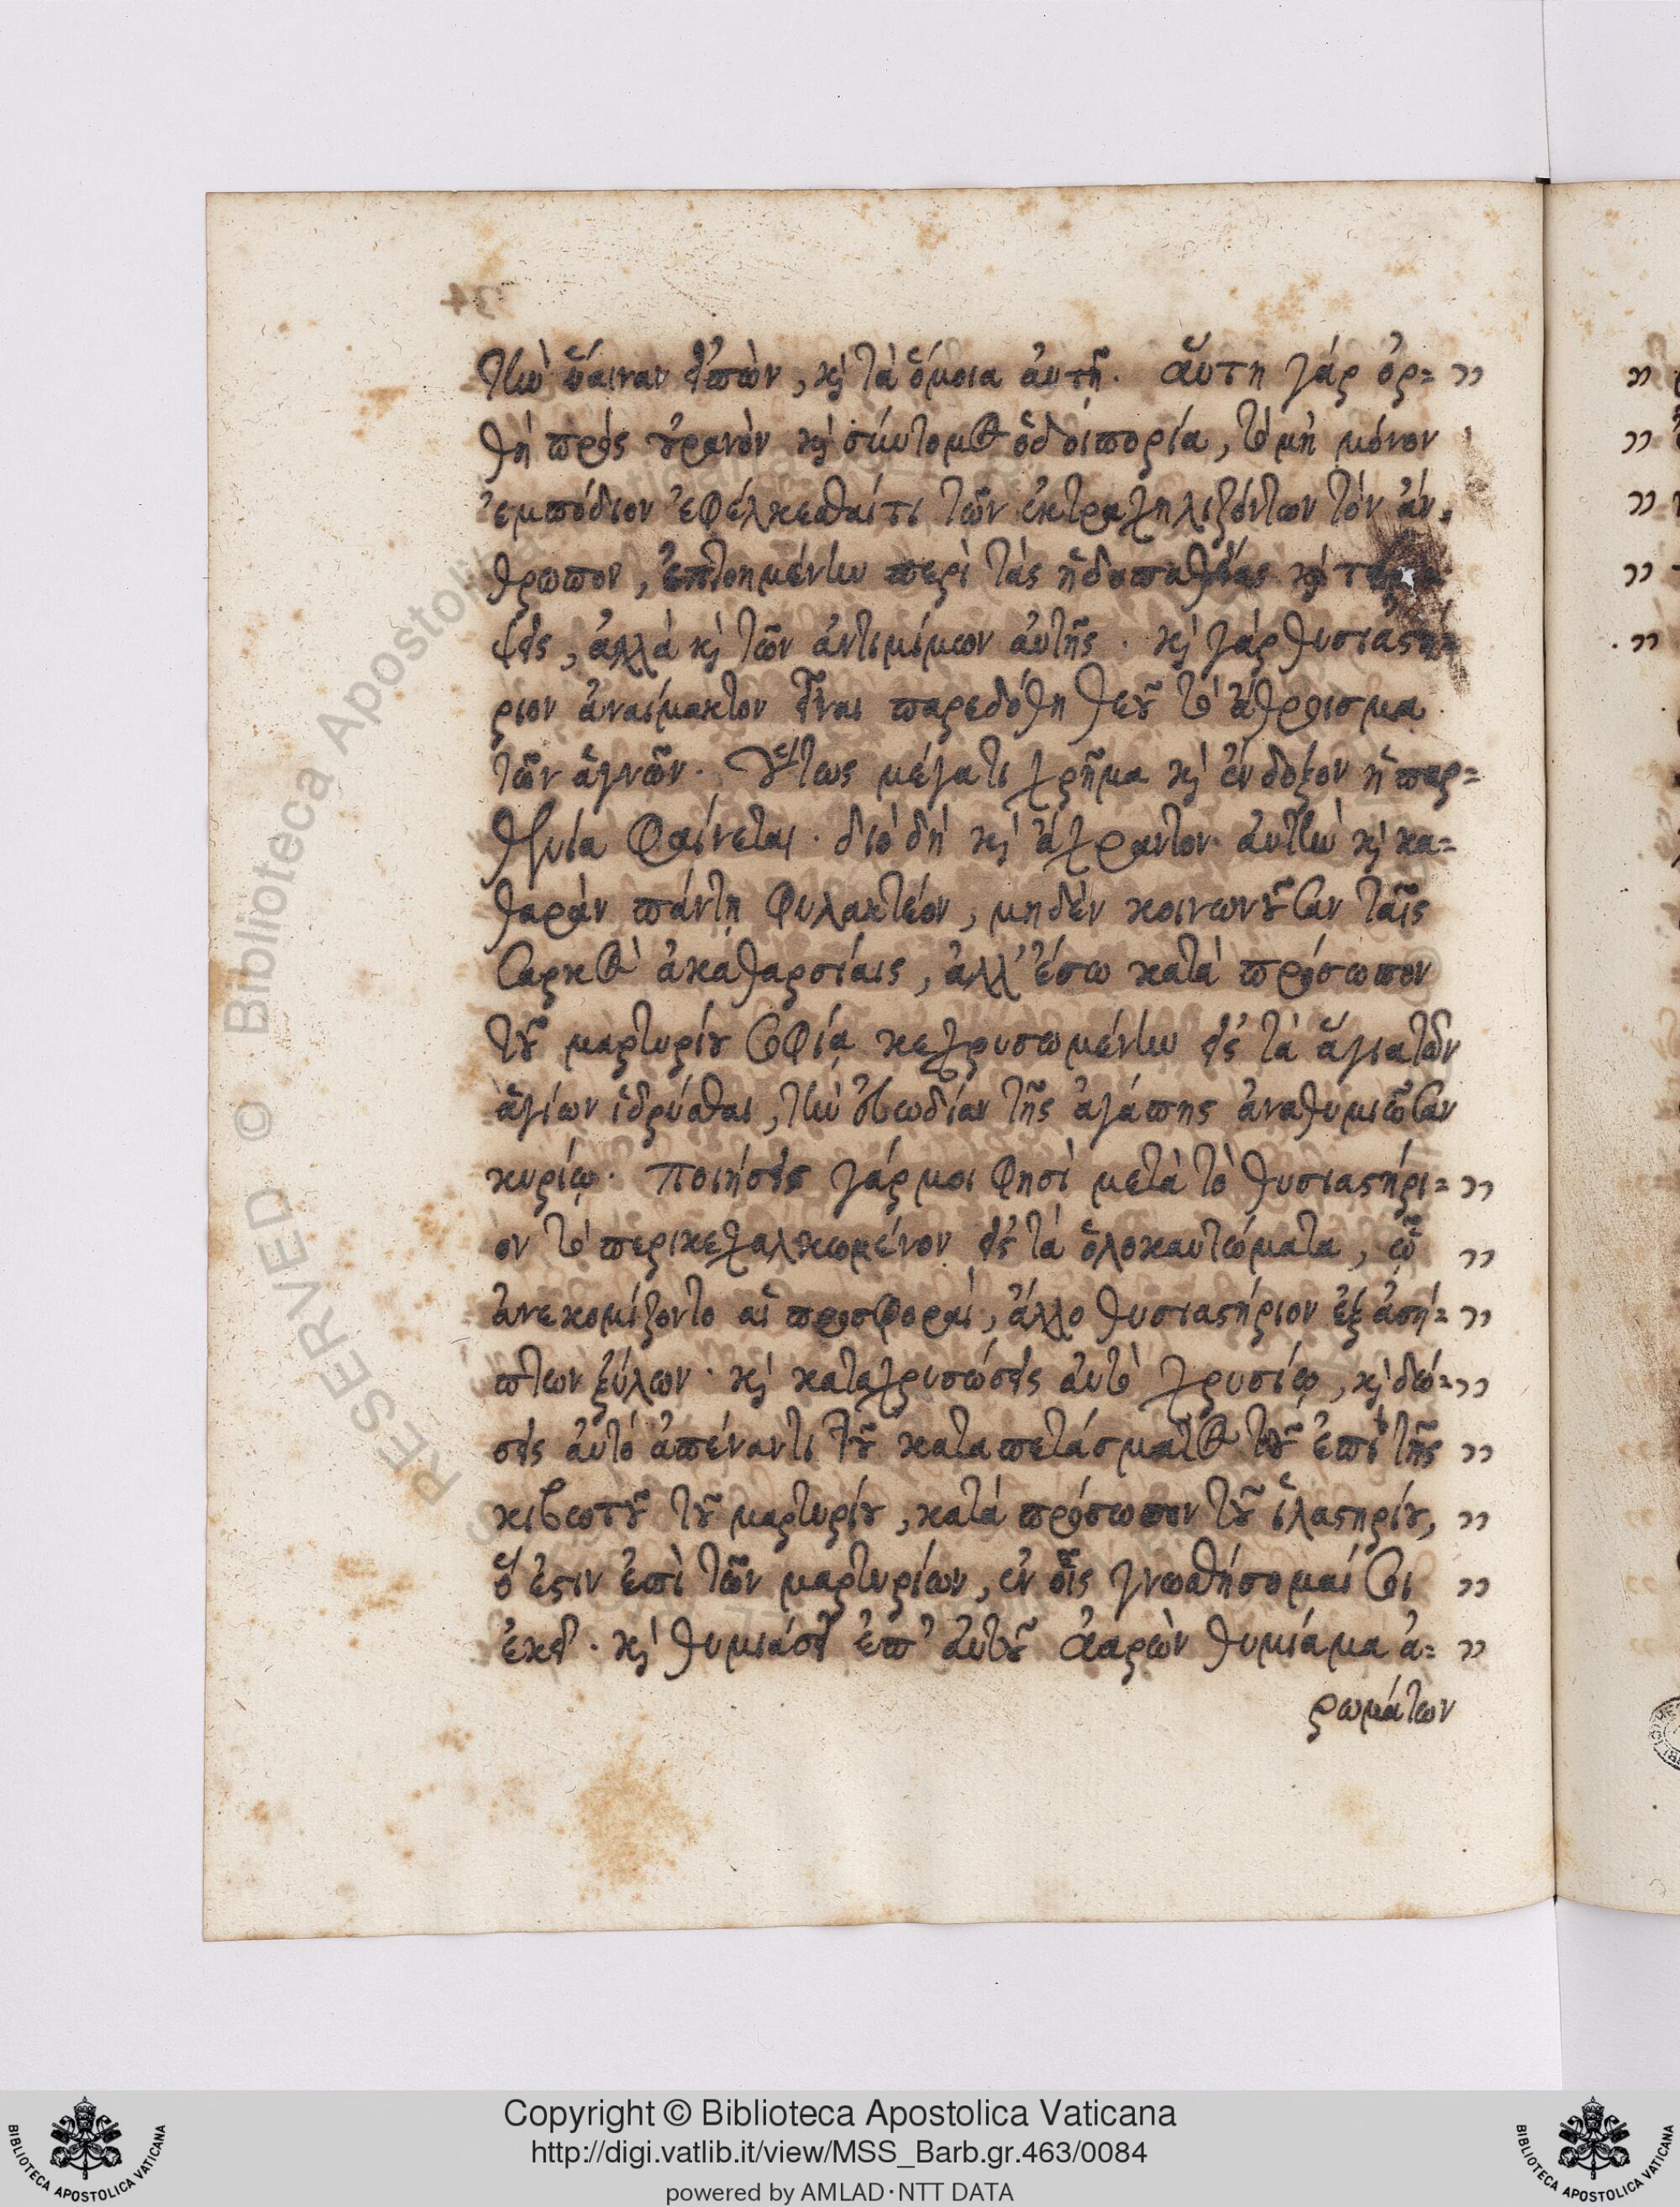 34
τὴν ὕαιναν εἰπὼν, κὶ τὰ ὅμοια αὐτῇ. αὕτη γάρ ὀρ= ״
θὴ πρὸς οὐρανὸν κὶ σύντομος ὁδοιπορία, τὸ μὴ μόνον
ἐμπόδιον ἐφέλκεσθαί τι τῶν ἐκτραχηλιζόντων τὸν ἄν,
θρωπον, ἐπτοημένην περὶ τὰς ἡδυπαθείας κὶ
ψεις, ἀλλὰ κὶ τῶν ἀντιμίμων αὐτῆς. κὶ γὰρ θυσιαστή=
ριον ἀναίμακτον εἶναι παρεδόθη θεοῦ τὸ ἄθροισμα
τῶν ἁγνῶν. οὕτως μέγα τι χρῆμα κὶ ἔνδοξον ἡ παρ=
θενία φαίνεται. διὸ δὴ κὶ ἄχραντον αὐτὴν κὶ κα=
θαρὰν πάντη φυλακτέον, μηδὲν κοινωνοῦσαν ταῖς
σαρκὸς ἀκαθαρσίαις, ἀλλ' ἔσω κατὰ πρόσωπον
τοῦ μαρτυρίου σοφίᾳ κεχρυσωμένην εἰς τὰ ἅγια τῶν
ἁγίων ἱδρύσθαι, τὴν εὐωδίαν τῆς ἀγάπης ἀναθυμιῶσαν
κυρίῳ. ποιήσεις γάρ μοι φησὶ μετὰ τὸ θυσιαστήρι= ״
ον τὸ περικεχαλκωμένον εἰς τὰ ὁλοκαυτώματα, ᾧ ״
ἀνεκομίζοντο αἱ προσφοραί, ἄλλο θυσιαστήριον ἐξ ἀσή= ״
πτων ξύλων. κὶ καταχρυσώσεις αὐτὸ χρυσίῳ, κὶ δώ= ״
σεις αὐτὸ ἀπέναντι τοῦ καταπετάσματος τοῦ ἐπὶ τῆς ״
κιβωτοῦ τοῦ μαρτυρίου, κατὰ πρόσωπον τοῦ ἱλαστηρίου, ״
ὅ ἐστιν ἐπὶ τῶν μαρτυρίων, ἐν οἷς γνωσθήσομαί σοι ״
ἐκεῖ. κὶ θυμιάσει ἐπ' αὐτοῦ ἀαρὼν θυμίαμα ἀ= ״
ρωμάτων
RESERVED © Biblioteca Apostolica Vaticana
Copyright © Biblioteca Apostolica Vaticana
http://digi.vatlib.it/view/MSS_Barb.gr.463/0084
powered by AMLAD·NTT DATA
BIBLIOTECA APOSTOLICA VATICANA
BIBLIOTECA APOSTOLICA VATICANA